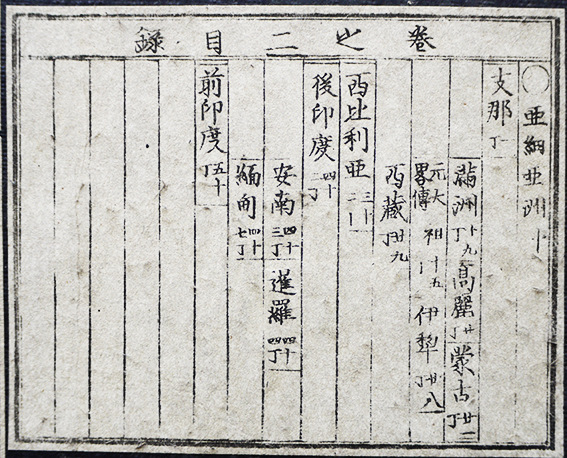 卷之二目錄
〇亜細亜洲
支那
滿洲 十九丁 高麗 廿丁 蒙古 廿一丁
元大祖畧傳 伊犁 廿八丁
西藏 廿九丁
西比利亜
後印度 四十二丁
安南 四十三丁 暹羅 四十四丁
緬甸 四十七丁
前印度 五十丁